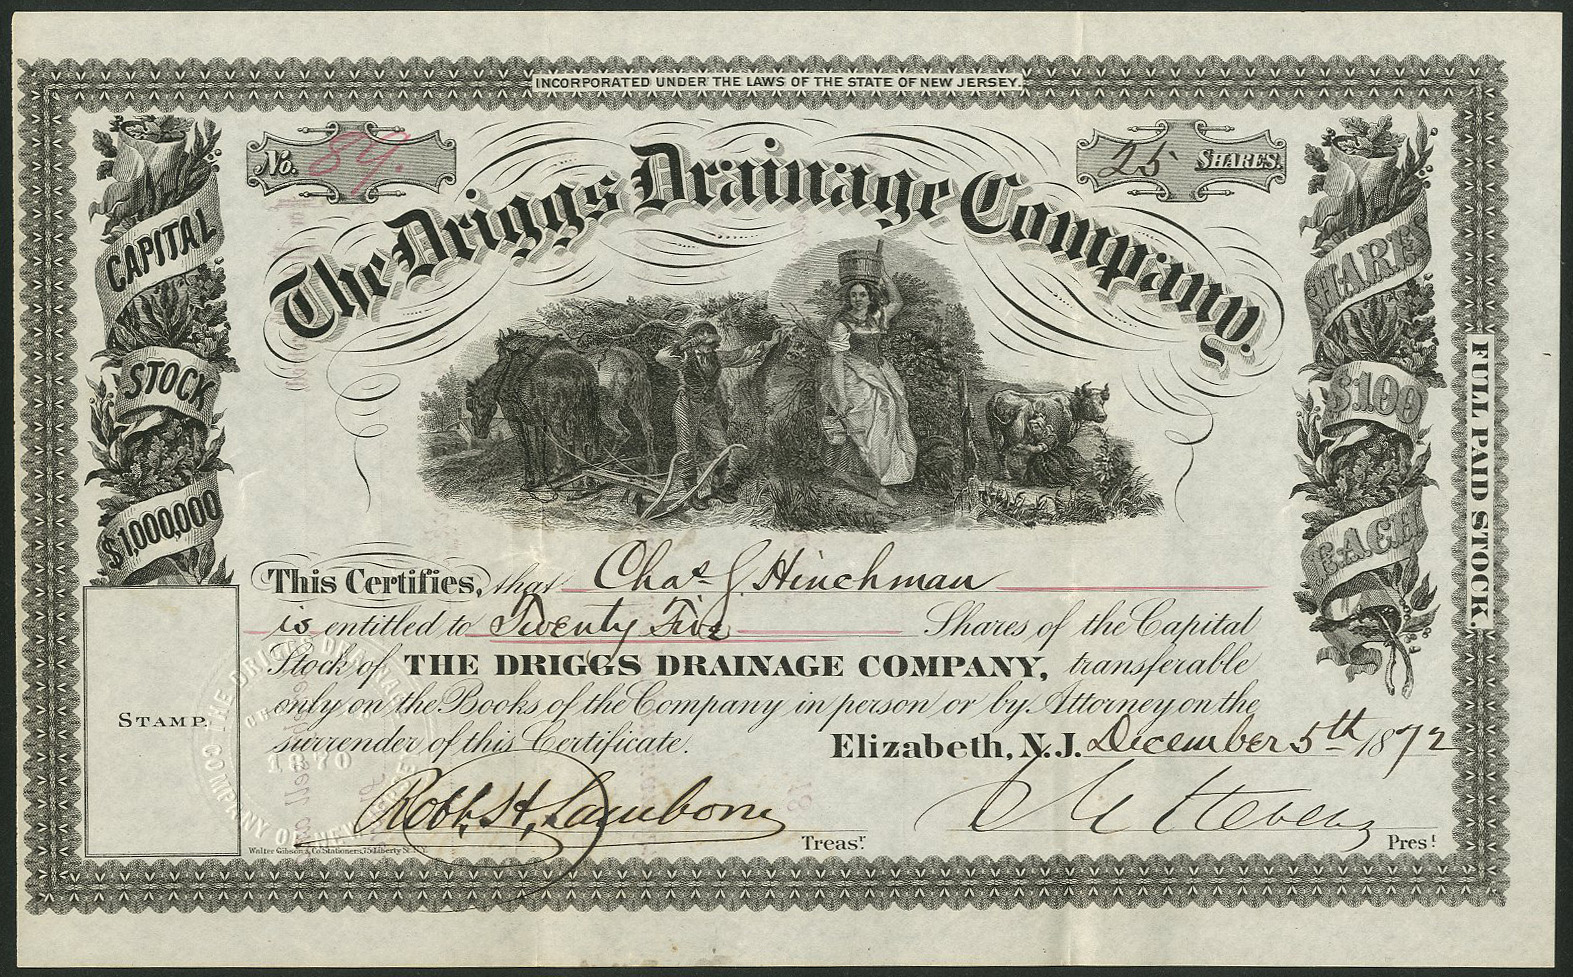 INCORPORATED UNDER THE LAWS OF THE STATE OF NEW JERSEY.
No. 89.
25 SHARES.
The Driggs Drainage Company,
CAPITAL
STOCK
$1,000,000
SHARES
$100
EACH
FULL PAID STOCK.
This Certifies, that Chas J. Hinchman
is entitled to Twenty Five Shares of the Capital
Stock of THE DRIGGS DRAINAGE COMPANY, transferable
only on the Books of the Company in person or by Attorney on the
surrender of this Certificate.
Elizabeth, N.J. December 5th 1872
STAMP.
THE DRIGGS DRAINAGE
COMPANY OF NEW JERSEY
1870
Robt. H. Lamborn
Treasr.
Stevens
Prest
Walter Gibson & Co. Stationers, 75 Liberty St. N.Y.